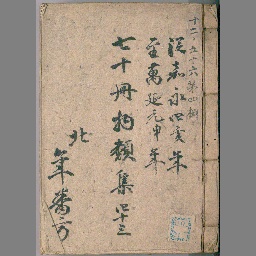 十二ノ五十六 第四輯
従嘉永四亥年
至萬延元申年
七十冊物類集 四十三
北
年番方